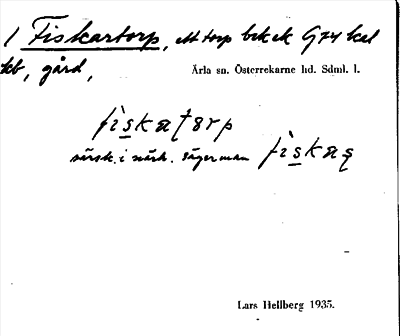 1 Fiskartorp, ett torp bck ek G74 kal
kb, gård,
Ärla sn. Österrekarne hd. Sdml. l.
fìskatorp
särsk. i närh. säger man fìskaʂ
Lars Hellberg 1935.